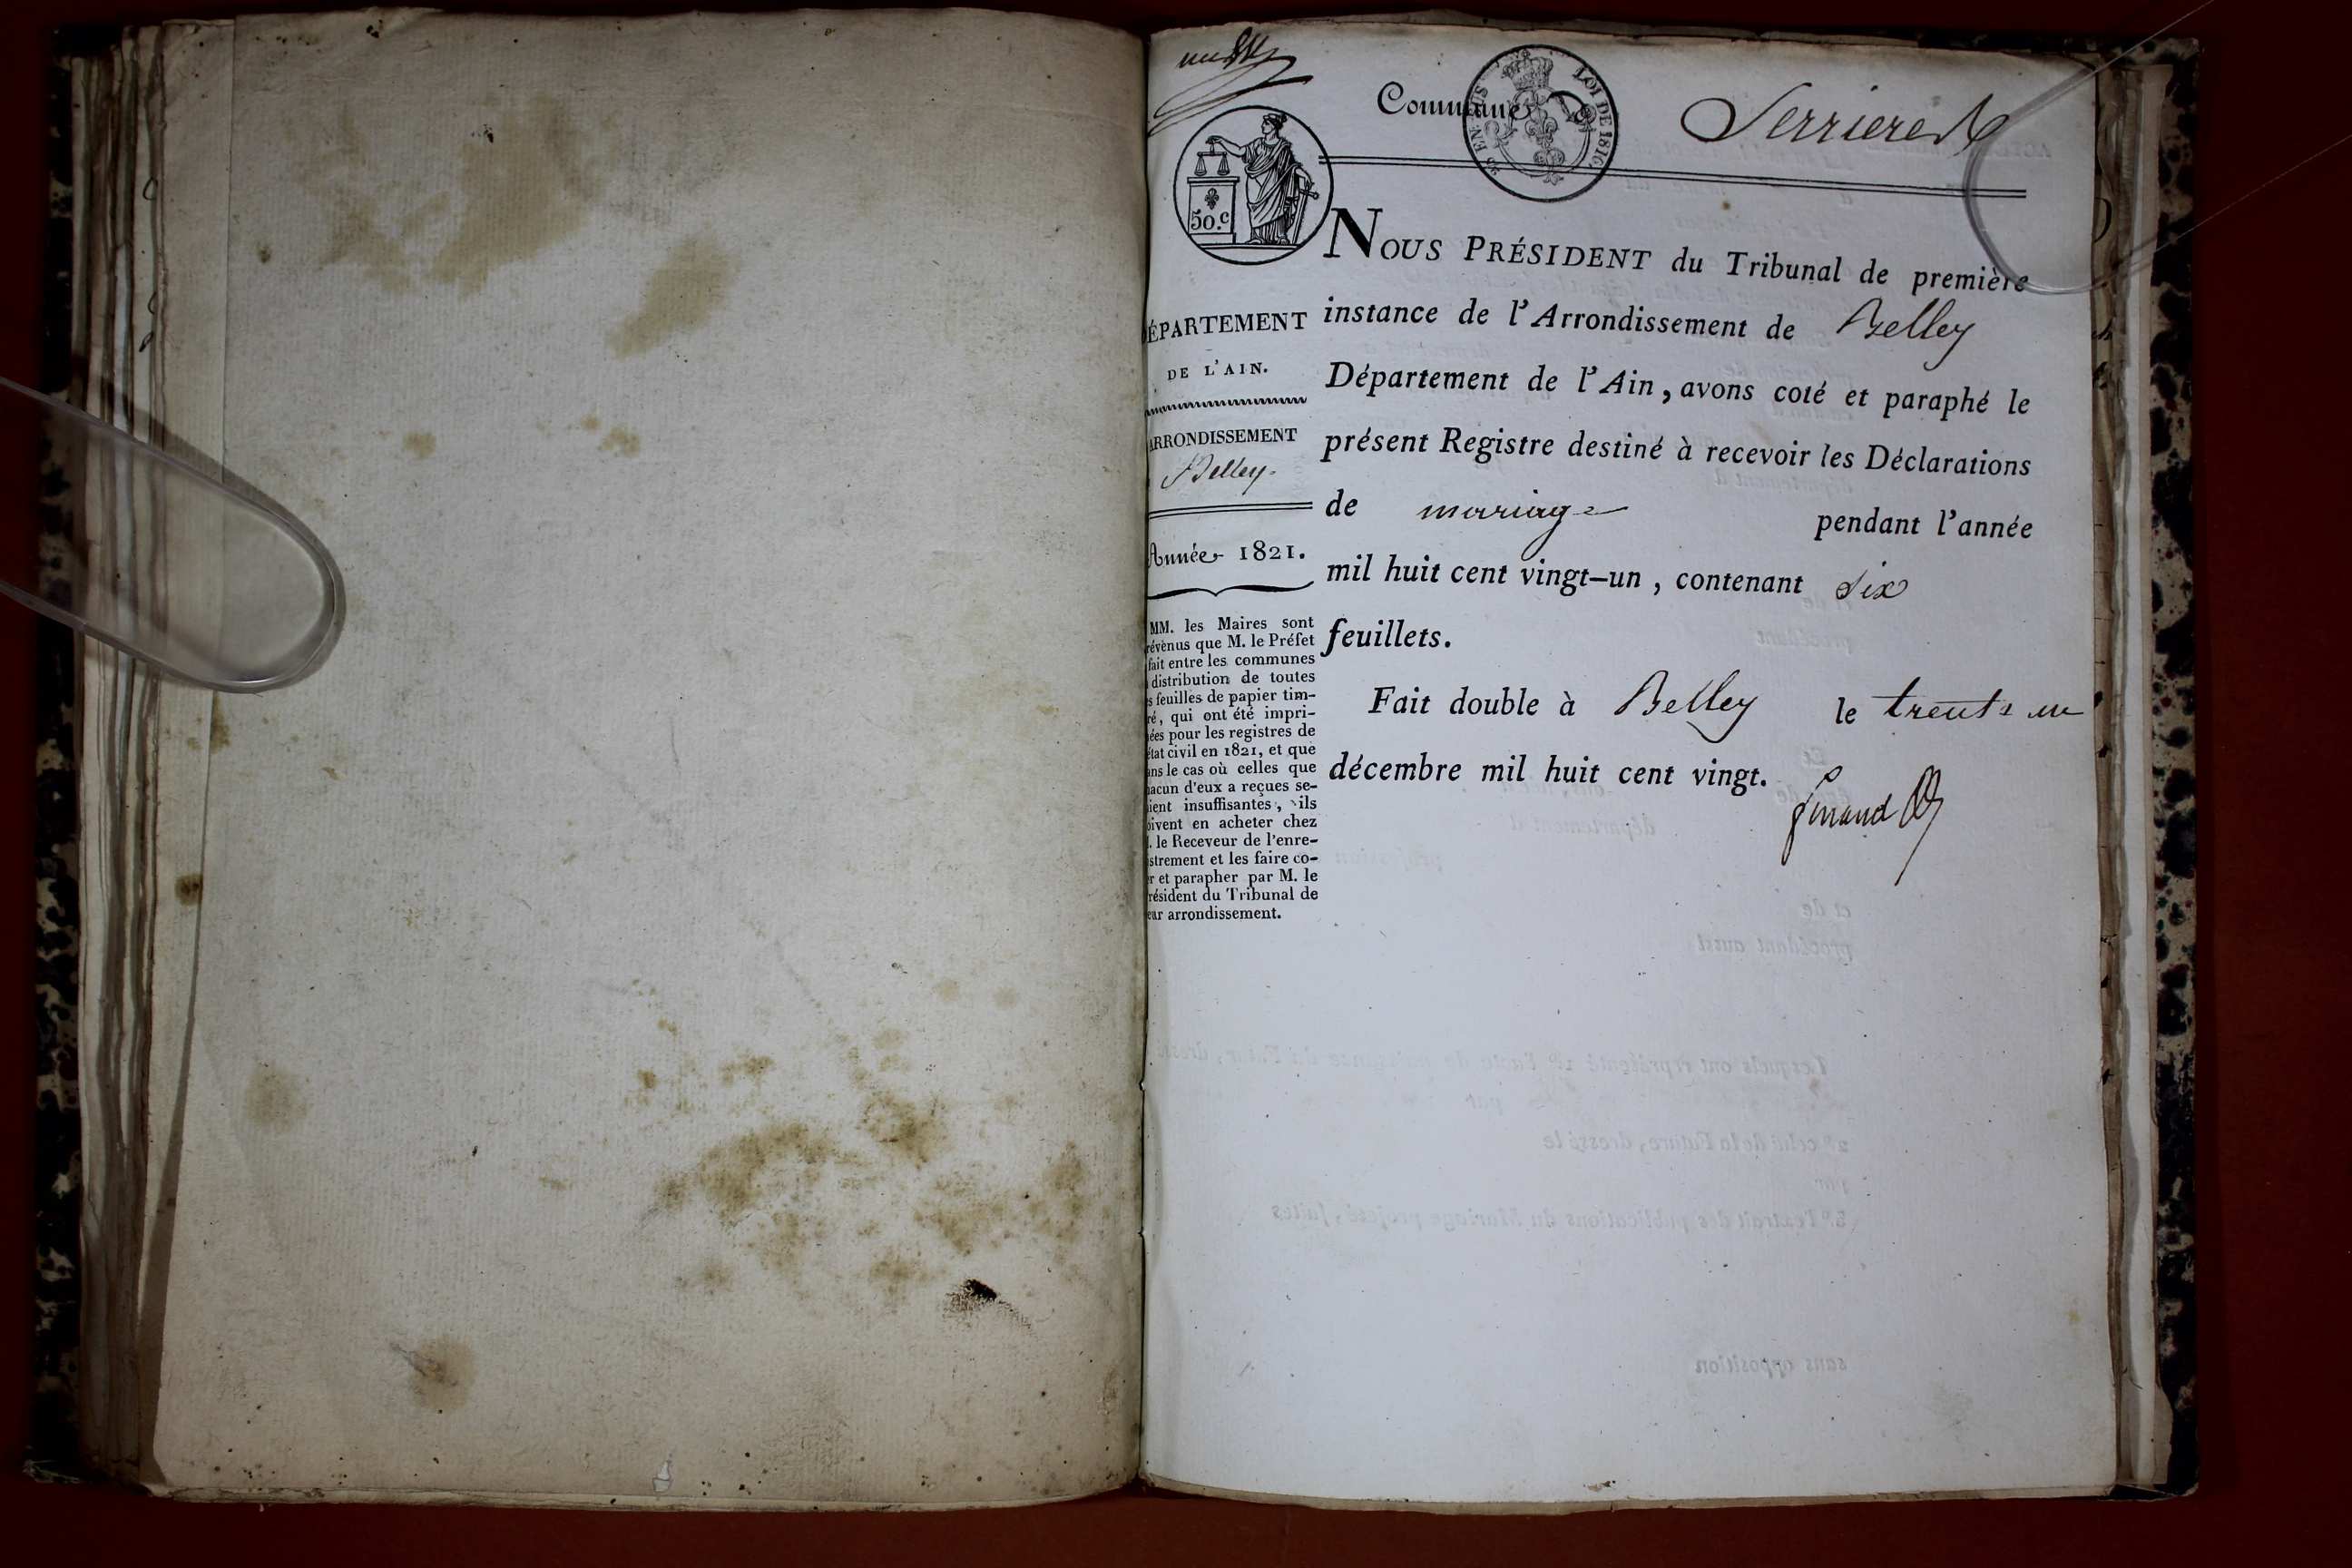 Commune
Serriere
LOI DE 1816
50.c
NOUS PRÉSIDENT du Tribunal de première
instance de l'Arrondissement de Belley
Département de l'Ain, avons coté et paraphé le
présent Registre destiné à recevoir les Déclarations
de mariage pendant l'année
mil huit cent vingt-un, contenant six
feuillets.
Fait double à Belley le trente un
décembre mil huit cent vingt.
DÉPARTEMENT
DE L'AIN.
ARRONDISSEMENT
Belley.
Année 1821.
MM. les Maires sont
révènus que M. le Préfet
fait entre les communes
distribution de toutes
s feuilles de papier tim-
ré, qui ont été impri-
ées pour les registres de
état civil en 1821, et que
ans le cas où celles que
hacun d'eux a reçues se-
ient insuffisantes, ils
oivent en acheter chez
. le Receveur de l'enre-
strement et les faire co-
r et parapher par M. le
résident du Tribunal de
eur arrondissement.